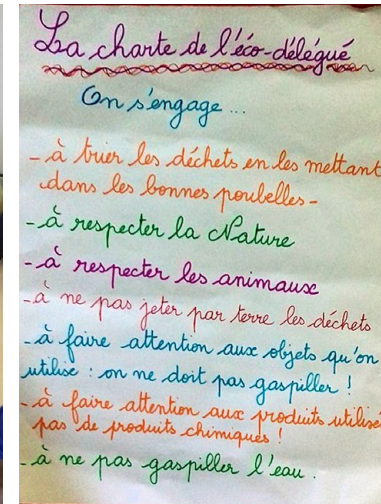 La charte de l'éco-délégué
On s'engage ...
- à trier les déchets en les mettant
dans les bonnes poubelles -
- à respecter la Nature
- à respecter les animaux
- à ne pas jeter par terre les déchets
- à faire attention aux objets qu'on
utilise : on ne doit pas gaspiller !
- à faire attention aux produits utilisé
pas de produits chimiques !
- à ne pas gaspiller l'eau.